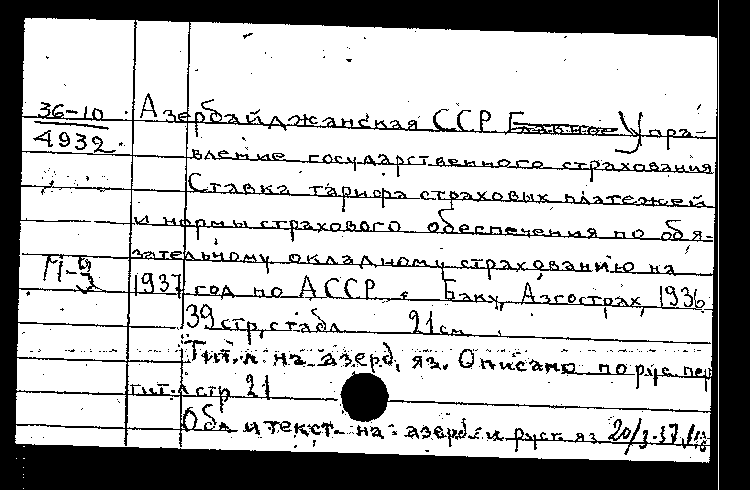 36-10
4932.
Азербайджанская ССР Главное Упра-
вление государственного страхования
Ставка тарифа страховых платежей
и нормы страхового обеспечения по обя-
зательному окладному страхованию на
М-9
1937 год по АССР. Баку, Азгострах, 1936
39 стр, с табл 21 см.
Тит.л. на азерб. яз. Описано по рус пер
тит.л стр 21
Обл и текст на азерб. и русск яз 20/3-37